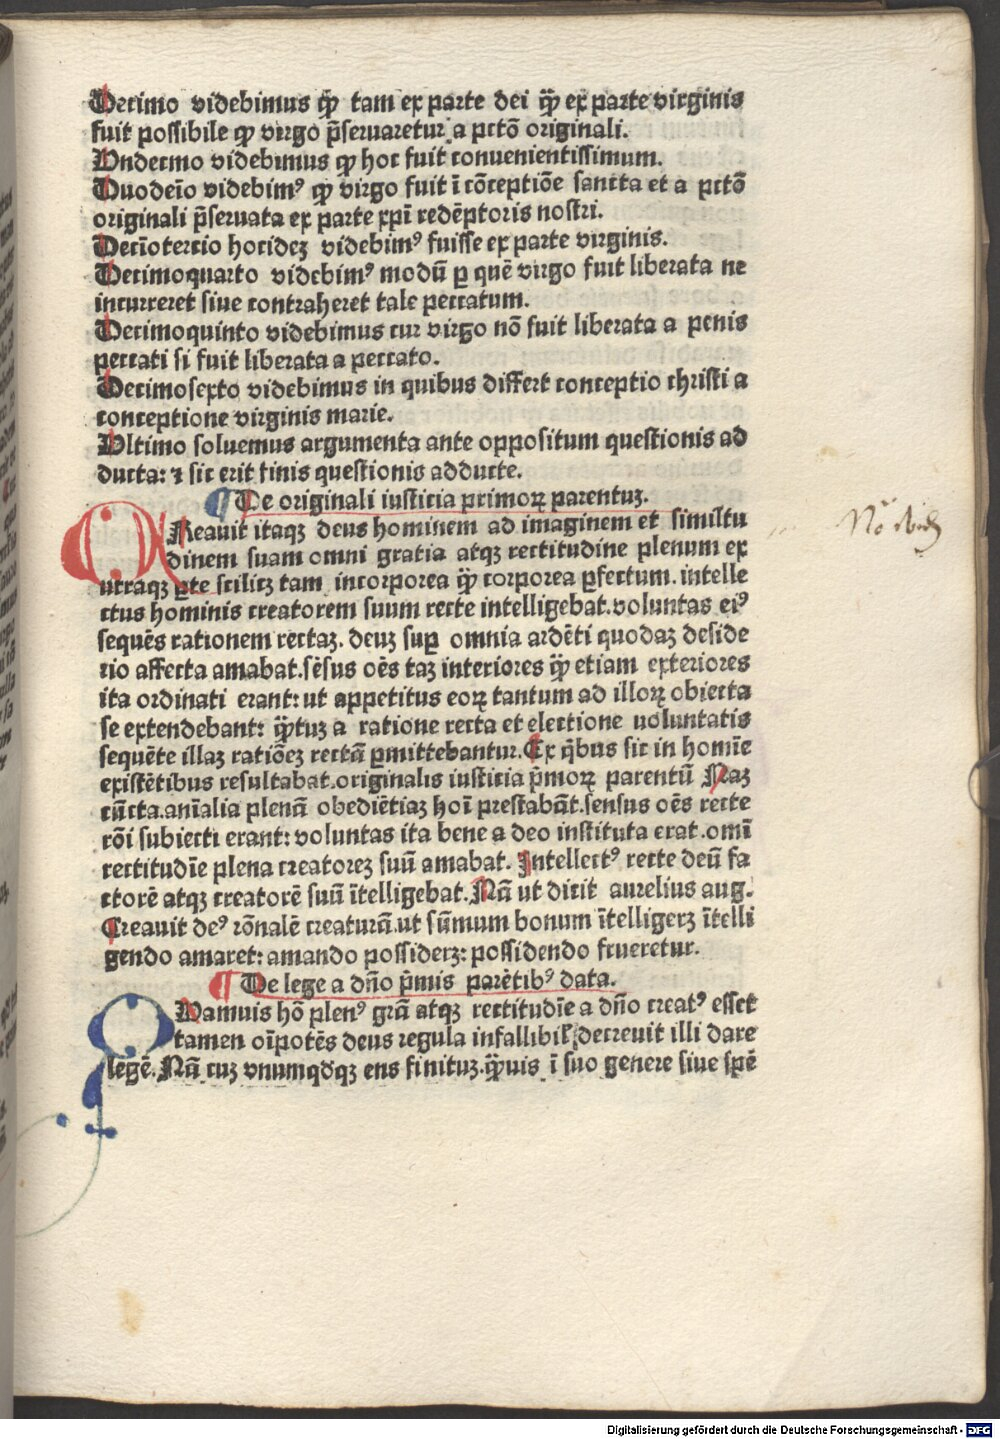 Decimo videbimus ꝙ̄ tam ex parte dei ꝙ̄ ex parte virginis
fuit possibile ꝙ virgo p̄seruaretur a pctō originali.
Undecmo videbimus ꝙ hoc fuit conuenientissimum.
Duodeīo videbimꝰ ꝙ virgo fuit ī cōceptiōe sancta et a pctō
originali p̄seruata ex parte xp̄i redēptoris nostri.
Decīotercio hocidez videbimꝰ fuisse ex parte virginis.
Decimoquarto videbimꝰ modū ꝑ quē virgo fuit liberata ne
incurreret siue contraheret tale peccatum.
Decimoquinto videbimus cur virgo nō fuit liberata a penis
peccati si fuit liberata a peccato.
Decimosexto videbimus in quibus differt conceptio christi a
conceptione virginis marie.
Ultimo soluemus argumenta ante oppositum questionis ad
ducta: ⁊ sic erit finis questionis adducte.
¶ De originali iusticia primoꝝ parentuz.
CReauit itaqꝫ deus hominem ad imaginem et similtu
dinem suam omni gratia atqꝫ rectitudine plenum ex
utraqꝫ ꝑte scilicꝫ tam incorporea ꝙ̄ corporea ꝑfectum. intelle
ctus hominis creatorem suum recte intelligebat. voluntas eiꝰ
sequēs rationem rectaz. deuz suꝑ omnia ardēti quodaz deside
rio affecta amabat. sēsus oēs taz interiores ꝙ̄ etiam exteriores
ita ordinati erant: ut appetitus eoꝝ tantum ad illoꝝ obiecta
se extendebant: ꝙ̄tuz a ratione recta et electione uoluntatis
sequēte illaz ratiōez rectā ꝑmittebantur. Ex q̄bus sic in homīe
existētibus resultabat. originalis iusticia p̄moꝝ parentū Naz
cūcta. anīalia plenā obediētiaz hoī prestabāt. sensus oēs recte
rōi subiecti erant: voluntas ita bene a deo instituta erat. omī
rectitudīe plena creatorez suū amabat. Intellectꝰ recte deū fa
ctorē atqꝫ creatorē suū ītelligebat. Nā ut dicit aurelius aug.
Creauit deꝰ rōnalē creaturā. ut sūmum bonum ītelligerꝫ ītelli
gendo amaret: amando possiderꝫ: possidendo frueretur.
¶ De lege a dn̄o p̄mis parētibꝰ data.
QUamuis hō plenꝰ grā atqꝫ rectitudīe a dn̄o creatꝰ esset
tamen oīpotēs deus regula infallibil' decreuit illi dare
legē. Nā cuz vnumqdqꝫ ens finituz. ꝙ̄uis ī suo genere siue spē
Digitalisierung gefördert durch die Deutsche Forschungsgemeinschaft - DFG